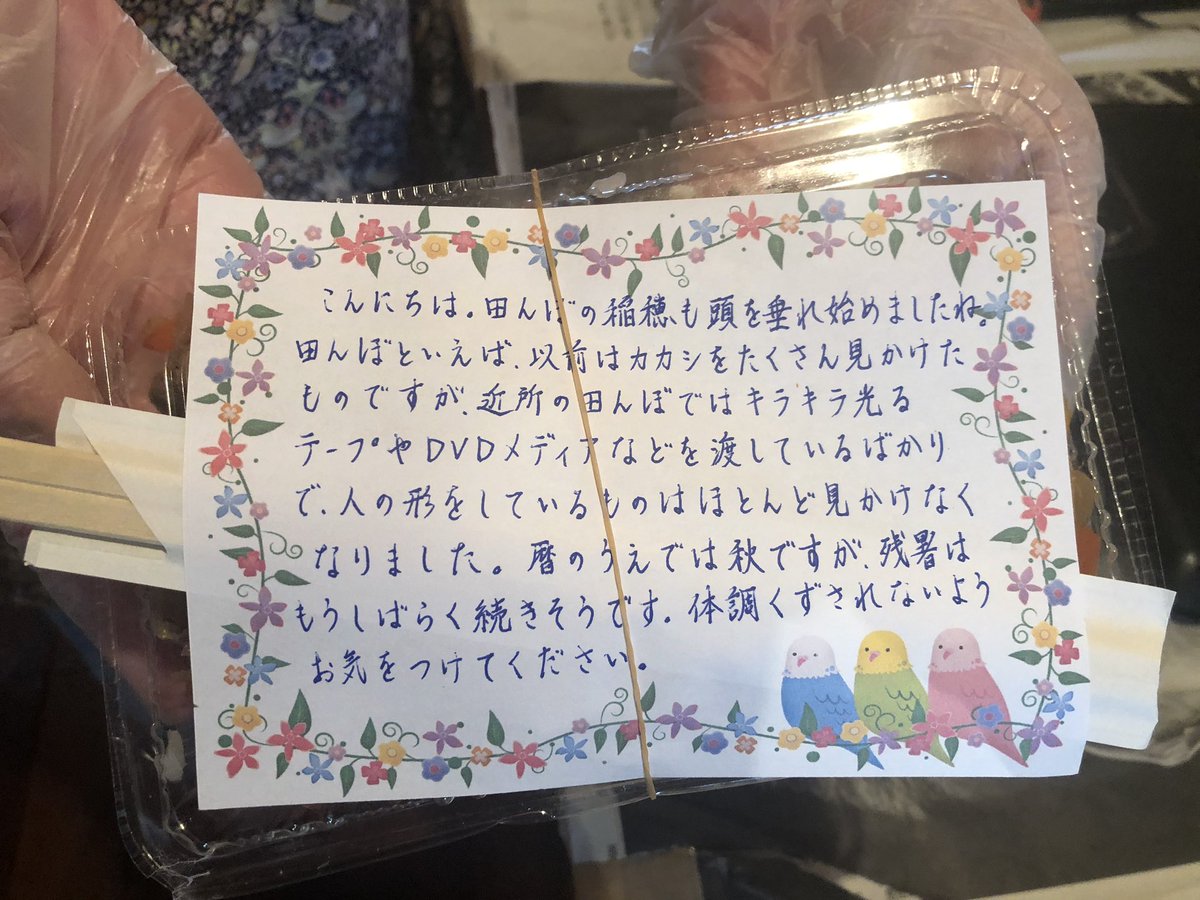 こんにちは。田んぼの稲穂も頭を垂れ始めましたね。
田んぼといえば、以前はカカシをたくさん見かけた
ものですが、近所の田んぼではキラキラ光る
テープやDVDメディアなどを渡しているばかり
で、人の形をしているものはほとんど見かけなく
なりました。暦のうえでは秋ですが、残暑は
もうしばらく続きそうです。体調くずされないよう
お気をつけてください。